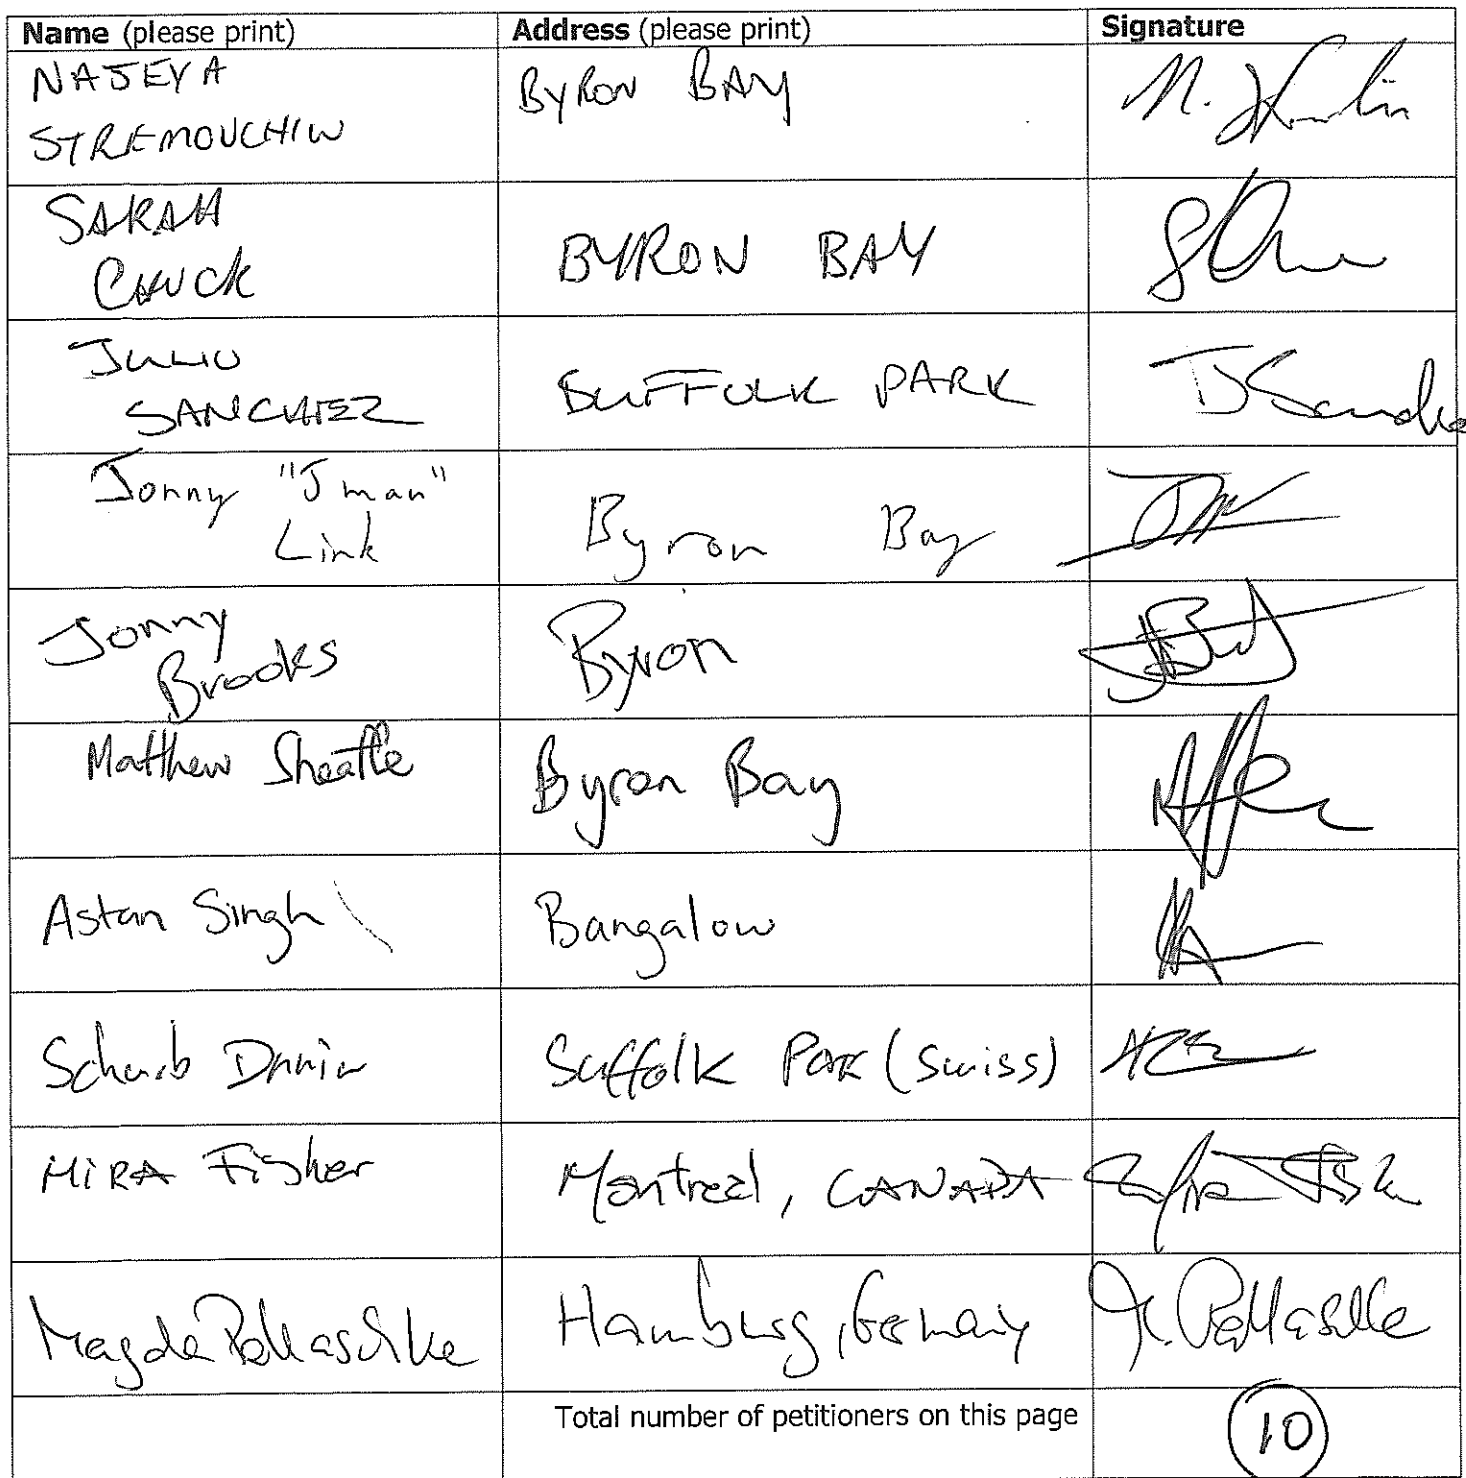 Name (please print) Address (please print) Signature
NAJEYA
STREMOUCHIW
BYRON BAY
SARAH
CHUCK
BYRON BAY
JULIO
SANCHEZ
SUFFOLK PARK
Jonny "J man"
Link
Byron Bay
Jonny
Brooks
Byron
Matthew Sheatle
Byron Bay
Astan Singh
Bangalow
Suffolk Park (Swiss)
MIRA Fisher
Montreal, CANADA
Magda
Hamburg, Germany
Total number of petitioners on this page 10